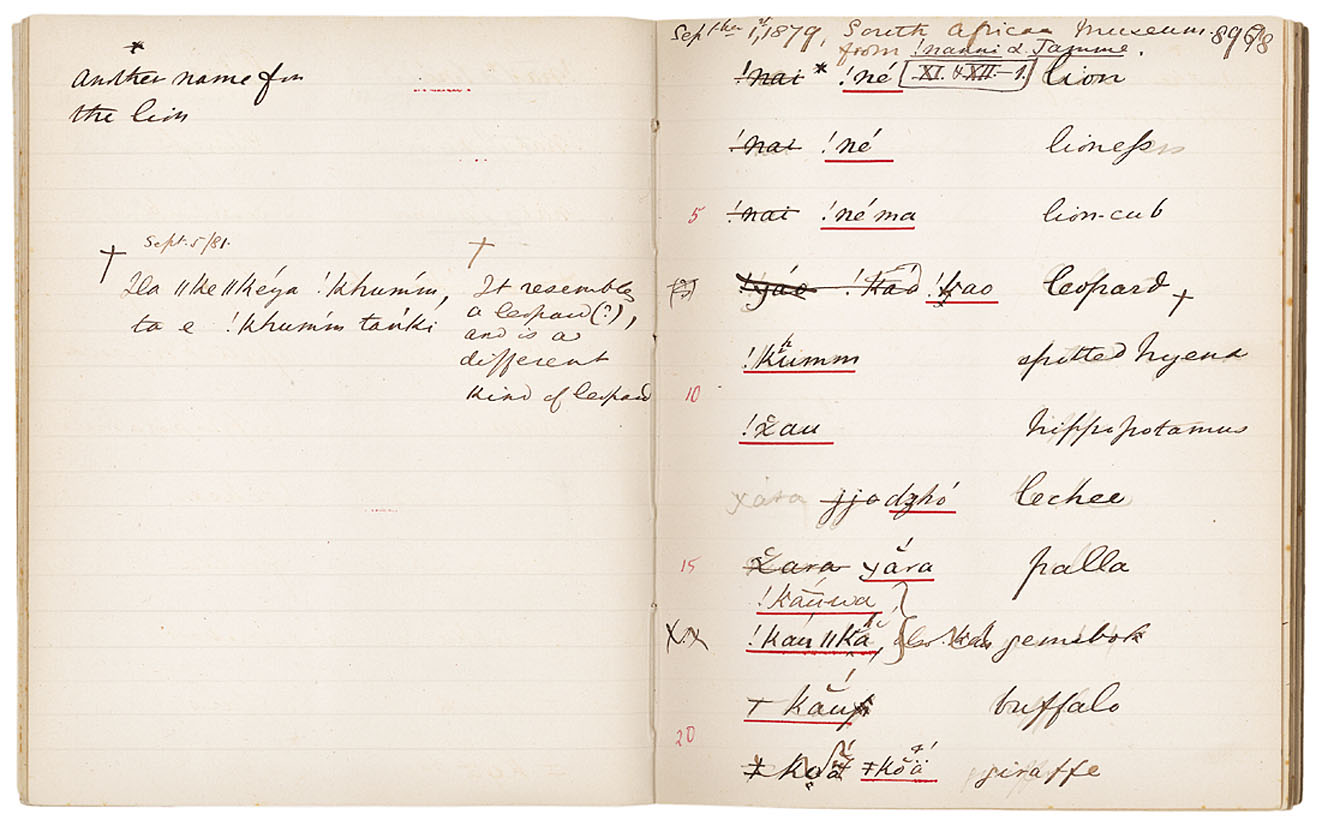 *
Another name for
the lion
Sept. 5/81.
† Ha ǁkeǁkéya !khumm̃,
ta e !khumm̃ tańki
† It resembles
a leopard(?),
and is a
different
kind of leopard
Septber 1st, 1879, South African Museum. 8968
from !nanni & Tamme.
!nai * !né XI. & XII.—1. lion
!nai !né lioness
5 !nai !néma lion-cub
!kao leopard †
!khumm spotted hyena
10
!x̌au hippopotamus
xára jjo dzhó lechee
15 x̌ara yǎra palla
!kāūwa
!kaú ǁka, also gemsbok
ǂ kāu buffalo
20
ǂ kŏä giraffe